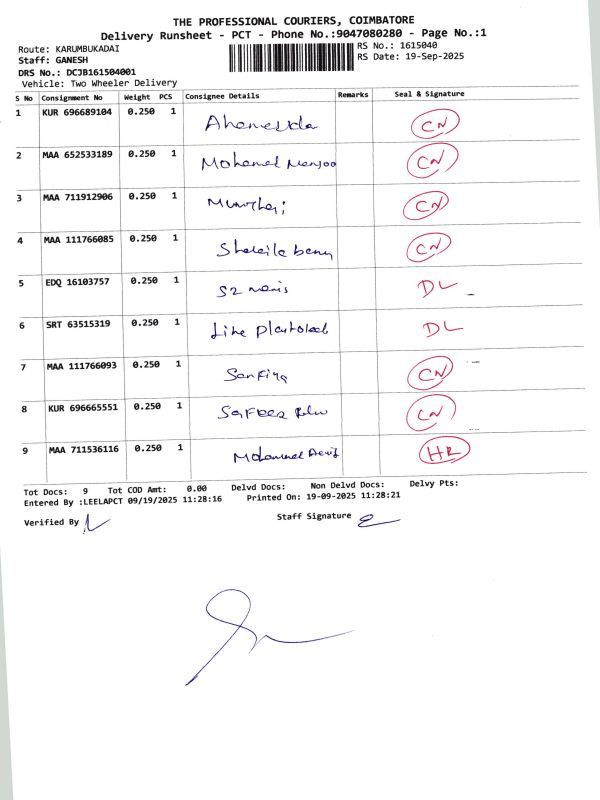 THE PROFESSIONAL COURIERS, COIMBATORE
Delivery Runsheet - PCT - Phone No.:9047080280 - Page No.:1
Route: KARUMBUKADAI RS No.: 1615040
Staff: GANESH RS Date: 19-Sep-2025
DRS No.: DCJB161504001
Vehicle: Two Wheeler Delivery
S No Consignment No Weight PCS Consignee Details Remarks Seal & Signature
1 KUR 696689104 0.250 1 CN
2 MAA 652533189 0.250 1 Mohamed CN
3 MAA 711912906 0.250 1 CN
4 MAA 111766085 0.250 1 CN
5 EDQ 16103757 0.250 1 DL
6 SRT 63515319 0.250 1 DL
7 MAA 111766093 0.250 1 CN
8 KUR 696665551 0.250 1 CN
9 MAA 711536116 0.250 1 Mohammed HR
Tot Docs: 9 Tot COD Amt: 0.00 Delvd Docs: Non Delvd Docs: Delvy Pts:
Entered By :LEELAPCT 09/19/2025 11:28:16 Printed On: 19-09-2025 11:28:21
Verified By Staff Signature